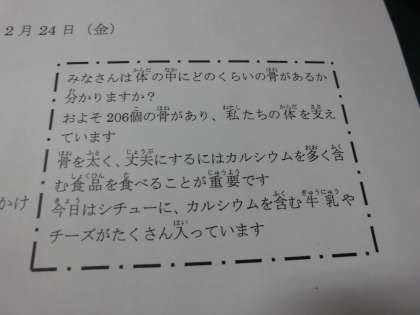 2月24日（金）
みなさんは体の中にどのくらいの骨があるか
分かりますか？
およそ206個の骨があり、私たちの体を支え
ています
骨を太く、丈夫にするにはカルシウムを多く含
む食品を食べることが重要です
かけ
今日はシチューに、カルシウムを含む牛乳や
チーズがたくさん入っています